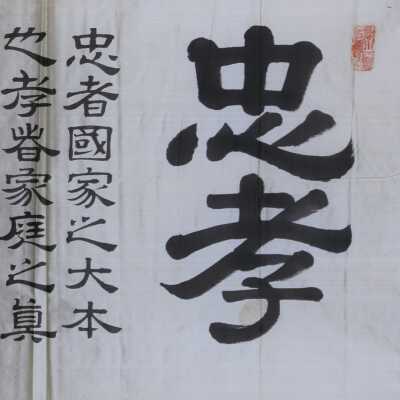 忠孝
忠者國家之大本
也孝者家庭之眞